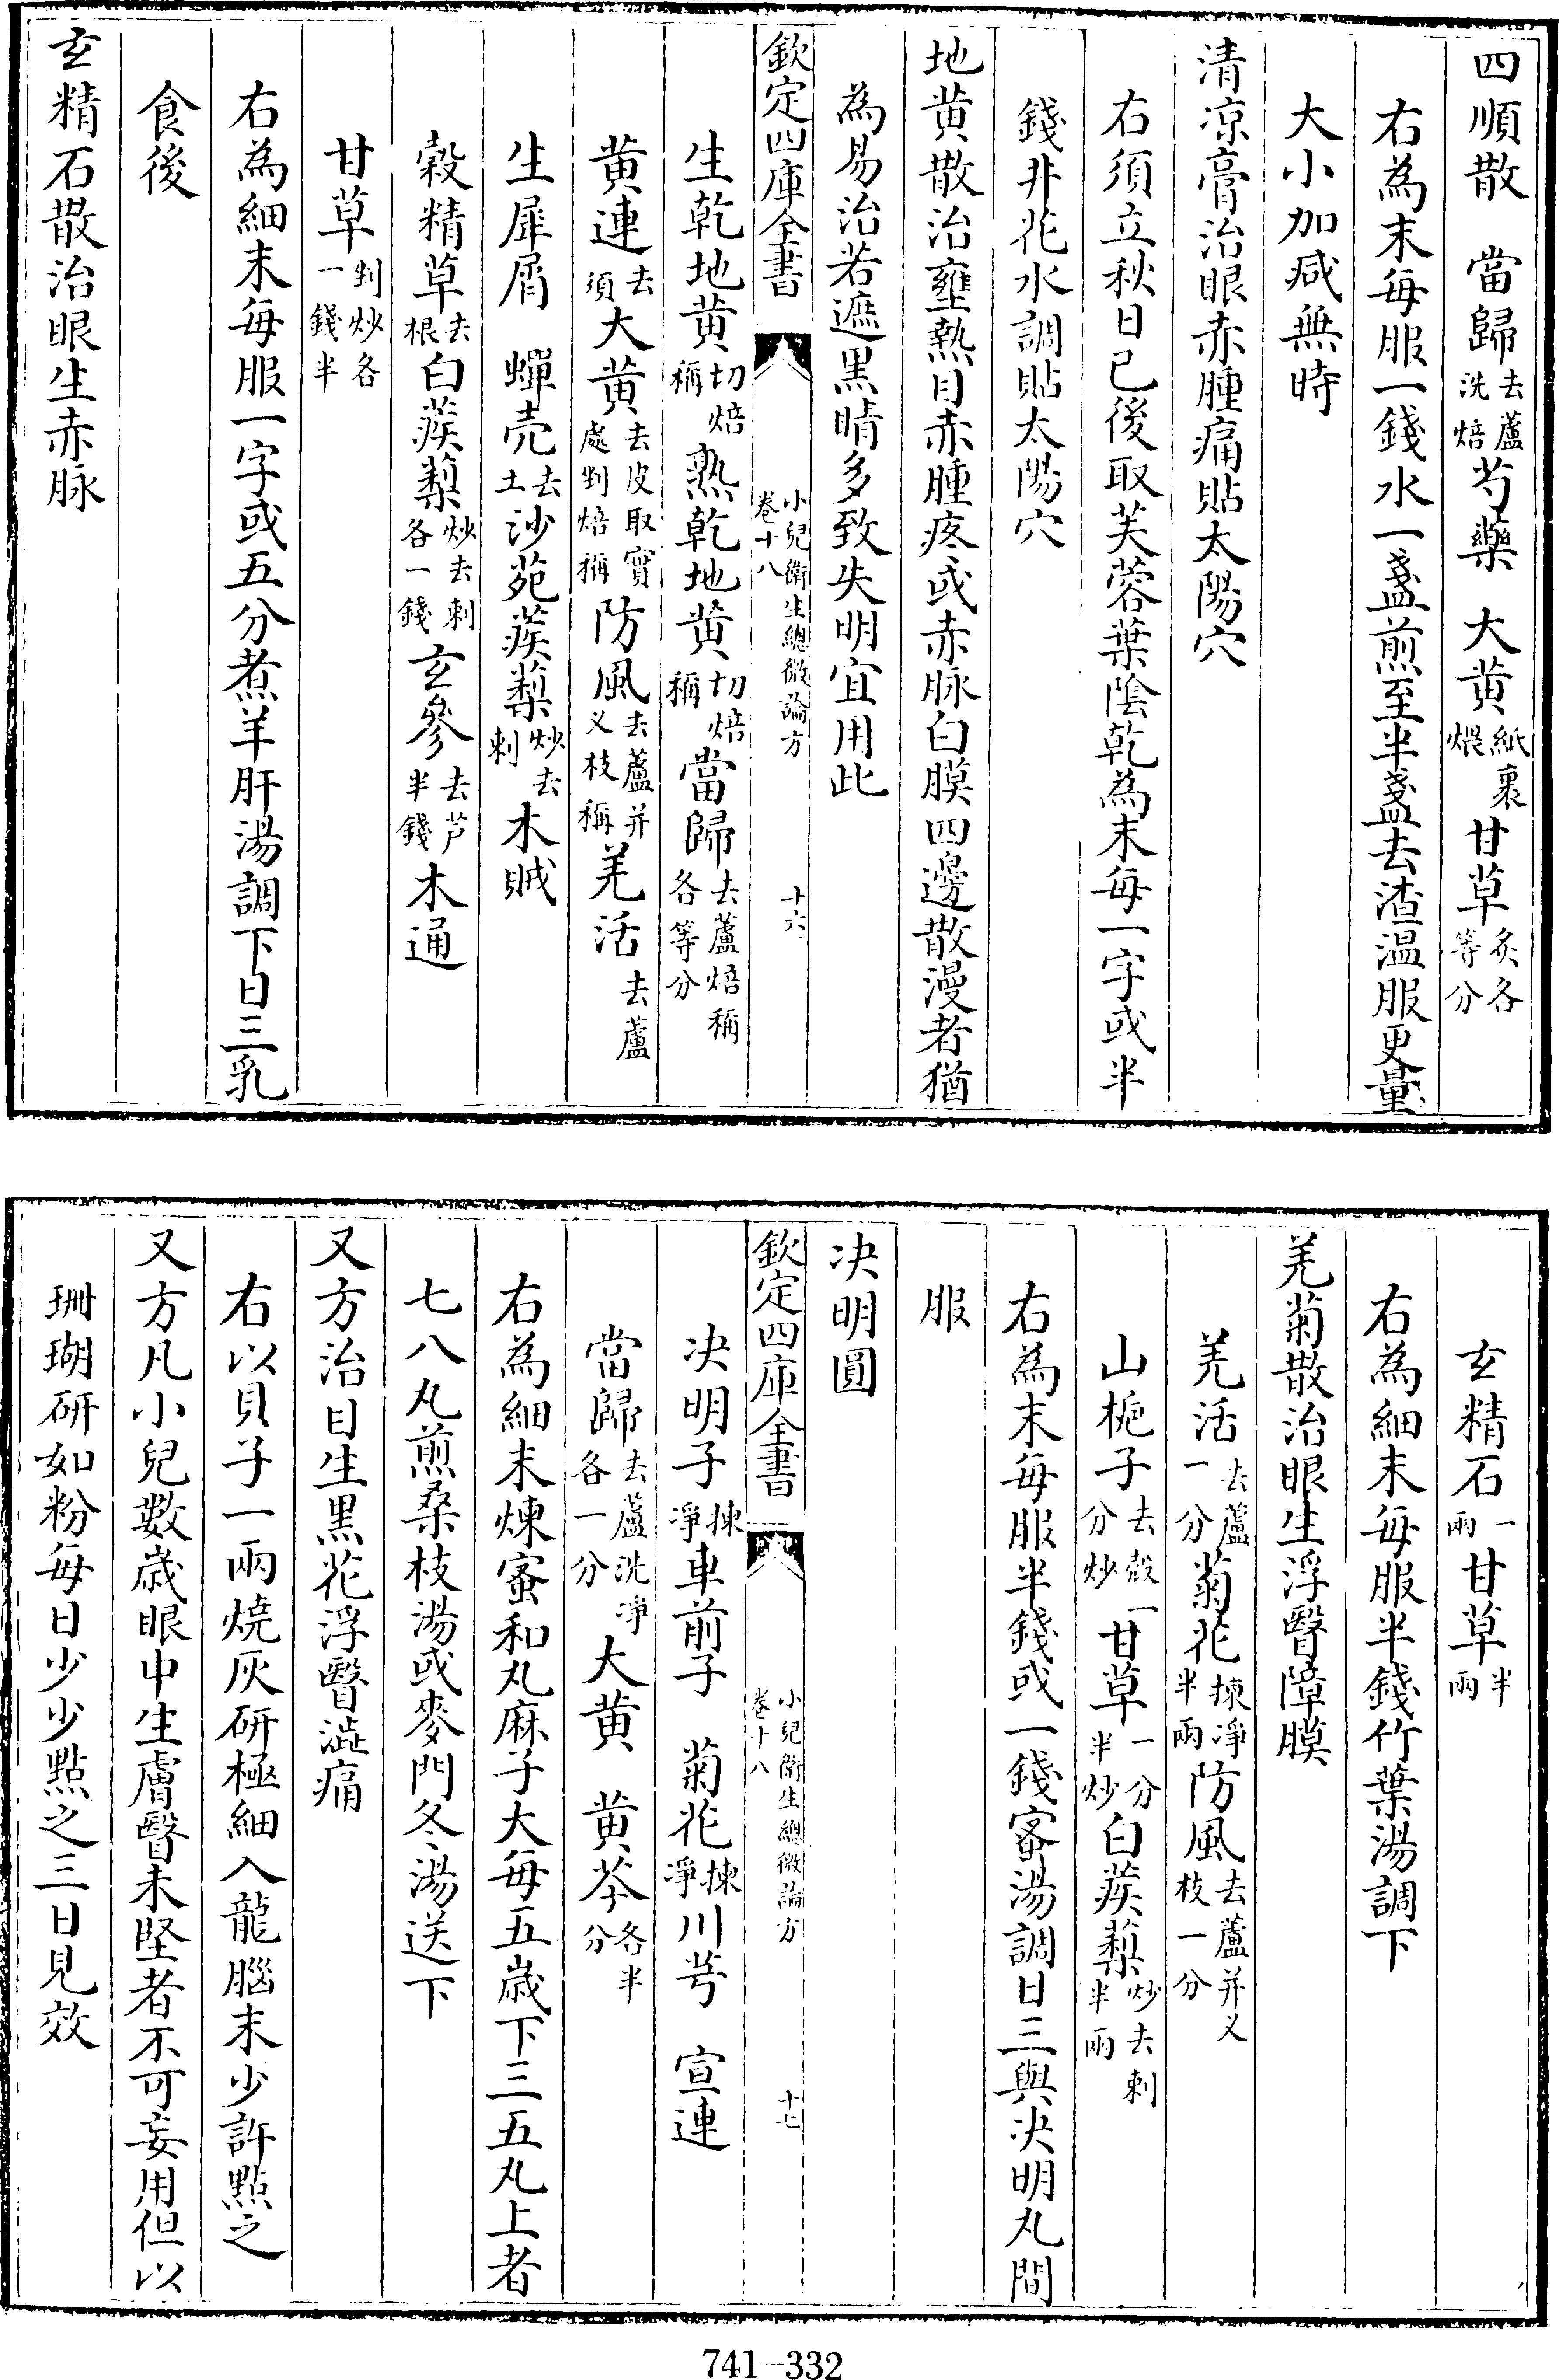 四順散　當歸去蘆洗焙芍藥　大黄紙裏煨甘草炙各等分
右為末每服一錢水一盞煎至半盞去渣温服更量
大小加减無時
清凉膏治眼赤腫痛貼太陽穴
右須立秋日已後取芙蓉葉陰乾為末每一字或半
錢井花水調貼太陽穴
地黄散治壅熱目赤腫疼或赤脉白膜四邊散漫者猶
為易治若遮黒睛多致失明宜用此
欽定四庫全書　小兒衛生總微論方卷十八　十六
生乾地黄切焙稱熟乾地黄切焙稱當歸去蘆焙稱各等分
黄連去須大黄去皮取實處剉焙稱防風去蘆并义枝稱羌活去蘆
生犀屑　蟬壳去土沙苑蒺䔧炒去刺木賊
榖精草去根白蒺䔧炒去刺各一錢玄參去芦半錢木通
甘草剉炒各一錢半
右為細末每服一字或五分煮羊肝湯調下日三乳
食後
玄精石散治眼生赤脉
玄精石一兩甘草半兩
右為細末每服半錢竹葉湯調下
羌菊散治眼生浮翳障膜
羌活去蘆一分菊花揀淨半兩防風去蘆并义枝一分
山梔子去殻一分炒甘草一分半炒白蒺䔧炒去刺半兩
右為末每服半錢或一錢蜜湯調日三與决明丸間
服
决明圓
欽定四庫全書　小兒衛生總微論方卷十八　十七
决明子揀淨車前子　菊花揀淨川芎　宣連
當歸去蘆洗淨各一分大黄　黄芩各半分
右為細末煉蜜和丸麻子大每五歲下三五丸上者
七八丸煎桑枝湯或麥門冬湯送下
又方治目生黒花浮翳澁痛
右以貝子一兩燒灰研極細入龍腦末少許點之
又方凡小兒數歲眼中生膚翳未堅者不可妄用但以
珊瑚研如粉每日少少點之三日見效
741-332